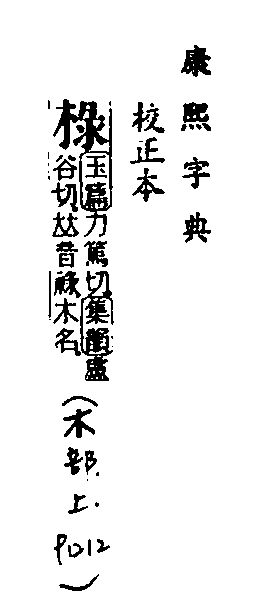 康熙字典
校正本
椂
玉篇力篤切集韻盧
谷切𠀤音祿木名
(木部上.P.1012)